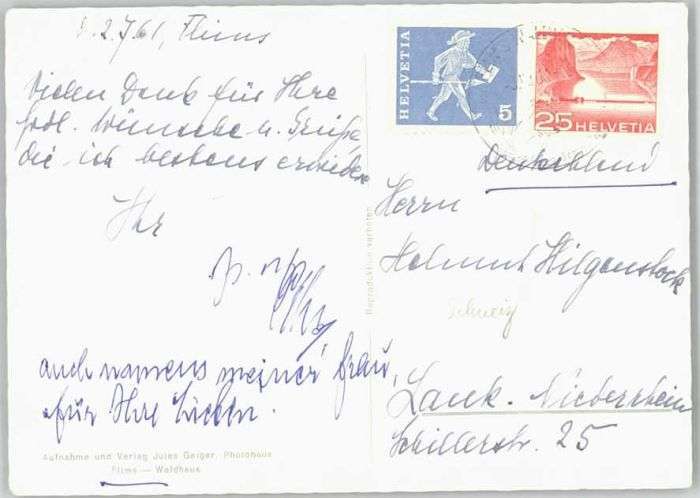 2.7.61, Flims
Vielen Dank für Ihre
frdl. Wünsche u. Grüße
die ich bestens erwidere
Ihr
auch namens meiner Frau,
für Ihre Lieben.
Aufnahme und Verlag Jules Geiger, Photohaus
Flims — Waldhaus
Reproduktion verboten
HELVETIA
5
25 HELVETIA
Deutschland
Herrn
Helmut Hilgenstock
Schweiz
Lank-Niederrhein
Schillerstr. 25